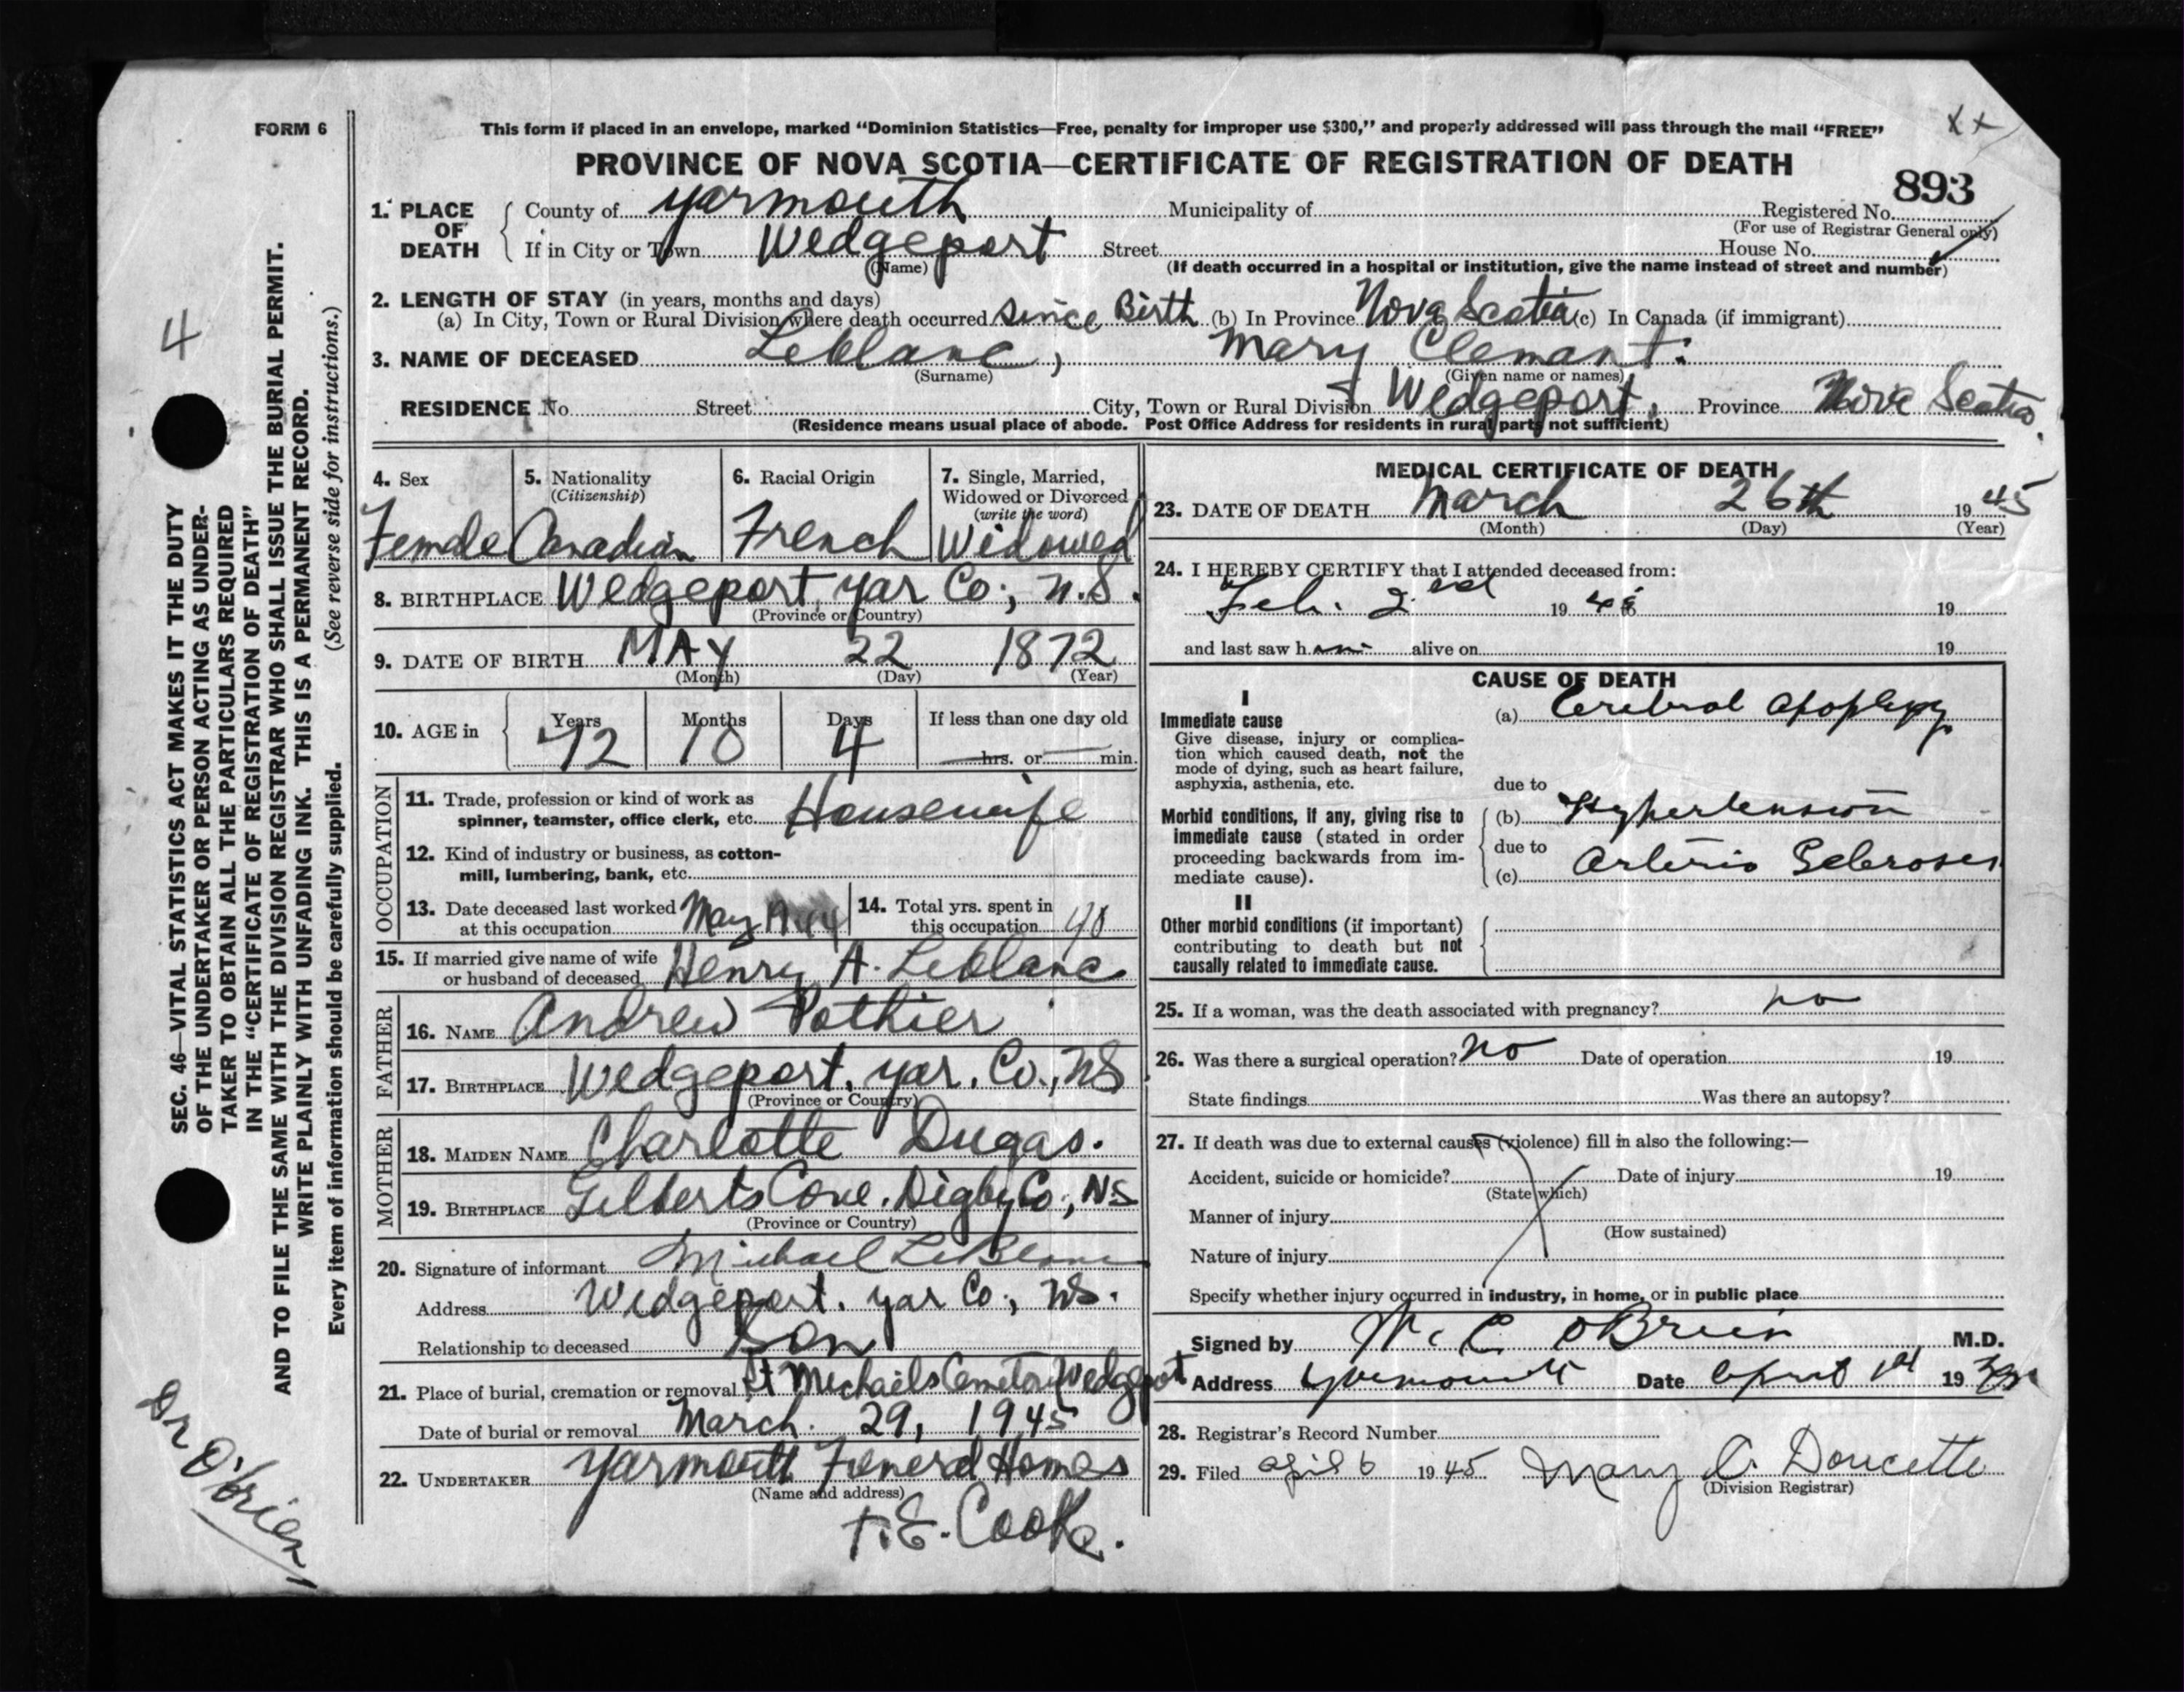 FORM 6
This form if placed in an envelope, marked “Dominion Statistics—Free, penalty for improper use $300,” and properly addressed will pass through the mail “FREE”
PROVINCE OF NOVA SCOTIA—CERTIFICATE OF REGISTRATION OF DEATH
893
1. PLACE OF DEATH
County of Yarmouth Municipality of Registered No.
(For use of Registrar General only)
If in City or Town Wedgeport Street House No.
(Name) (If death occurred in a hospital or institution, give the name instead of street and number)
2. LENGTH OF STAY (in years, months and days)
(a) In City, Town or Rural Division where death occurred since Birth (b) In Province Nova Scotia (c) In Canada (if immigrant)
3. NAME OF DECEASED Leblanc, Mary Clemant.
(Surname) (Given name or names)
RESIDENCE No. Street City, Town or Rural Division Wedgeport, Province Nova Scotia.
(Residence means usual place of abode. Post Office Address for residents in rural parts not sufficient)
4. Sex
Female
5. Nationality
(Citizenship)
Canadian
6. Racial Origin
French
7. Single, Married,
Widowed or Divorced
(write the word)
Widowed
8. BIRTHPLACE Wedgeport, Yar Co; N.S.
(Province or Country)
9. DATE OF BIRTH MAY 22 1872
(Month) (Day) (Year)
10. AGE in Years Months Days If less than one day old
72 10 4 hrs. or min.
OCCUPATION
11. Trade, profession or kind of work as
spinner, teamster, office clerk, etc. Housewife
12. Kind of industry or business, as cotton-
mill, lumbering, bank, etc.
13. Date deceased last worked
at this occupation May 1944
14. Total yrs. spent in
this occupation 40
15. If married give name of wife
or husband of deceased Henry A. Leblanc
FATHER
16. NAME Andrew Pothier
17. BIRTHPLACE Wedgeport, Yar. Co., NS
(Province or Country)
MOTHER
18. MAIDEN NAME Charlotte Dugas.
19. BIRTHPLACE Gilberts Cove. Digby Co; NS
(Province or Country)
20. Signature of informant Michael LeBlanc
Address Wedgeport, Yar Co; NS.
Relationship to deceased Son
21. Place of burial, cremation or removal St Michaels Cemetory Wedgeport
Date of burial or removal March 29, 1945
22. UNDERTAKER Yarmouth Funeral Homes
(Name and address)
F.E. Cooke.
MEDICAL CERTIFICATE OF DEATH
23. DATE OF DEATH March 26th 1945
(Month) (Day) (Year)
24. I HEREBY CERTIFY that I attended deceased from:
Feb. 2nd 19 to 19
and last saw h alive on 19
CAUSE OF DEATH
I
Immediate cause
Give disease, injury or complica-
tion which caused death, not the
mode of dying, such as heart failure,
asphyxia, asthenia, etc.
(a) Cerebral Apoplexy
due to
Morbid conditions, if any, giving rise to
immediate cause (stated in order
proceeding backwards from im-
mediate cause).
(b) Hypertension
due to
(c) Arterio Scleroses
II
Other morbid conditions (if important)
contributing to death but not
causally related to immediate cause.
25. If a woman, was the death associated with pregnancy? no
26. Was there a surgical operation? no Date of operation 19
State findings Was there an autopsy?
27. If death was due to external causes (violence) fill in also the following:—
Accident, suicide or homicide? Date of injury 19
(State which)
Manner of injury
(How sustained)
Nature of injury
Specify whether injury occurred in industry, in home, or in public place
Signed by W. C. O'Brien M.D.
Address Yarmouth Date April 1st 19
28. Registrar's Record Number
29. Filed April 6 1945 Mary A. Doucette
(Division Registrar)
4
SEC. 46—VITAL STATISTICS ACT MAKES IT THE DUTY
OF THE UNDERTAKER OR PERSON ACTING AS UNDER-
TAKER TO OBTAIN ALL THE PARTICULARS REQUIRED
IN THE “CERTIFICATE OF REGISTRATION OF DEATH”
AND TO FILE THE SAME WITH THE DIVISION REGISTRAR WHO SHALL ISSUE THE BURIAL PERMIT.
WRITE PLAINLY WITH UNFADING INK. THIS IS A PERMANENT RECORD.
Every item of information should be carefully supplied. (See reverse side for instructions.)
Dr O'Brien